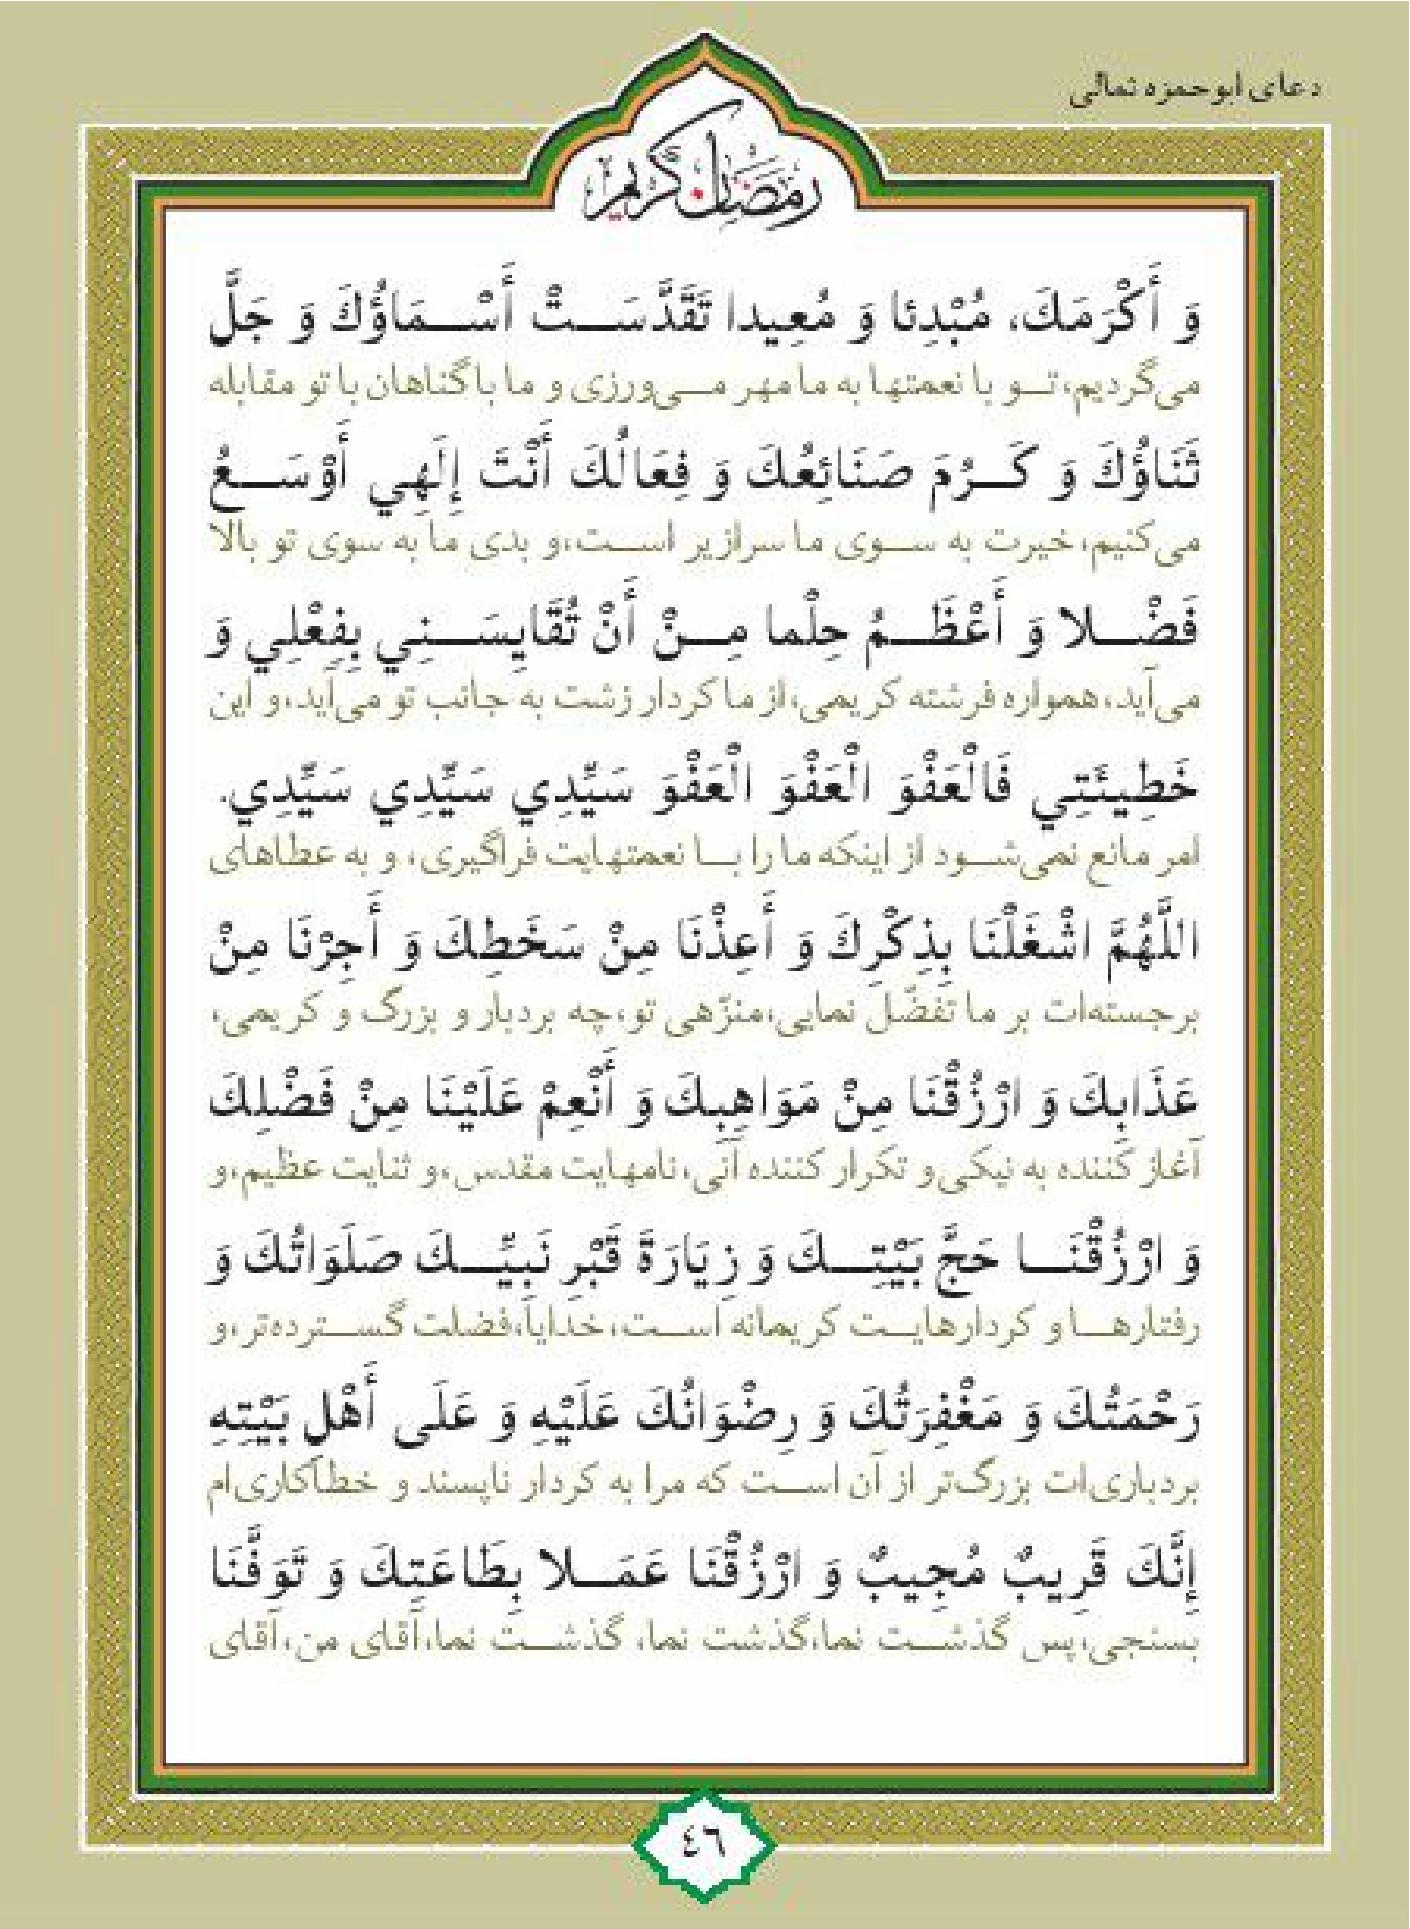 دعای ابوحمزه ثمالی
رمضان كريم
وَ أَكْرَمَكَ، مُبْدِئا وَ مُعِيدا تَقَدَّسَتْ أَسْمَاؤُكَ وَ جَلَّ
می‌گردیم، تو با نعمتها به ما مهر می‌ورزی و ما با گناهان با تو مقابله
ثَنَاؤُكَ وَ كَرُمَ صَنَائِعُكَ وَ فِعَالُكَ أَنْتَ إِلَهِي أَوْسَعُ
می‌کنیم، خیرت به سوی ما سرازیر است،و بدی ما به سوی تو بالا
فَضْلا وَ أَعْظَمُ حِلْما مِنْ أَنْ تُقَايِسَنِي بِفِعْلِي وَ
می‌آید، همواره فرشته کریمی،از ما کردار زشت به جانب تو می‌آید،و این
خَطِيئَتِي فَالْعَفْوَ الْعَفْوَ الْعَفْوَ سَيِّدِي سَيِّدِي سَيِّدِي.
امر مانع نمی‌شود از اینکه ما را با نعمتهایت فراگیری، و به عطاهای
اللَّهُمَّ اشْغَلْنَا بِذِكْرِكَ وَ أَعِذْنَا مِنْ سَخَطِكَ وَ أَجِرْنَا مِنْ
برجسته‌ات بر ما تفضّل نمایی،منزّهی تو،چه بردبار و بزرگ و کریمی،
عَذَابِكَ وَ ارْزُقْنَا مِنْ مَوَاهِبِكَ وَ أَنْعِمْ عَلَيْنَا مِنْ فَضْلِكَ
آغاز کننده به نیکی و تکرار کننده آنی،نامهایت مقدس،و ثنایت عظیم،و
وَ ارْزُقْنَا حَجَّ بَيْتِكَ وَ زِيَارَةَ قَبْرِ نَبِيِّكَ صَلَوَاتُكَ وَ
رفتارها و کردارهایت کریمانه است،خدایا،فضلت گسترده‌تر،و
رَحْمَتُكَ وَ مَغْفِرَتُكَ وَ رِضْوَانُكَ عَلَيْهِ وَ عَلَى أَهْلِ بَيْتِهِ
بردباری‌ات بزرگ‌تر از آن است که مرا به کردار ناپسند و خطاکاری‌ام
إِنَّكَ قَرِيبٌ مُجِيبٌ وَ ارْزُقْنَا عَمَلا بِطَاعَتِكَ وَ تَوَفَّنَا
بسنجی،پس گذشت نما،گذشت نما، گذشت نما،آقای من،آقای
٤٦